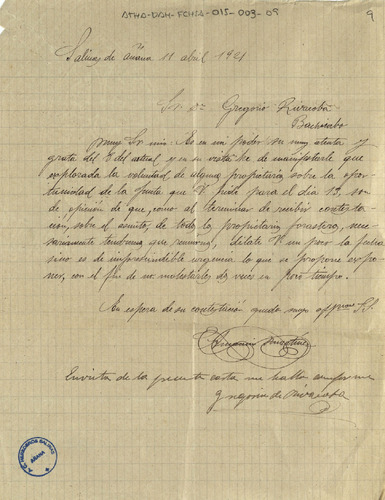 ATHA-DAH-FCHSA-015-003-09
9
Salinas de Añana 11 abril 1921
Sr. Dn. Gregorio Rivacoba
Barcabao
Muy Sr. mio: Es en mi poder su muy atenta y
grata del 8 del actual y en su vista he de manifestarle que
explorada la voluntad de algunos propietarios sobre la opor-
tunidad de la junta que V. pide para el dia 13, son
de opinión de que, como al terminar de recibir contesta-
ción, sobre el asunto, de todos los propietarios forasteros, nece-
sariamente tendremos que reunirnos, dilate V. un poco la fecha
si no es de imprescindible urgencia lo que se propone expo-
ner, con el fin de no molestarles dos veces en poco tiempo.
En espera de su contestación queda suyo affmo S.S.
Martinez
En vista de la presente carta me hallo conforme
Gregorio de Rivacoba
SALINAS
AÑANA